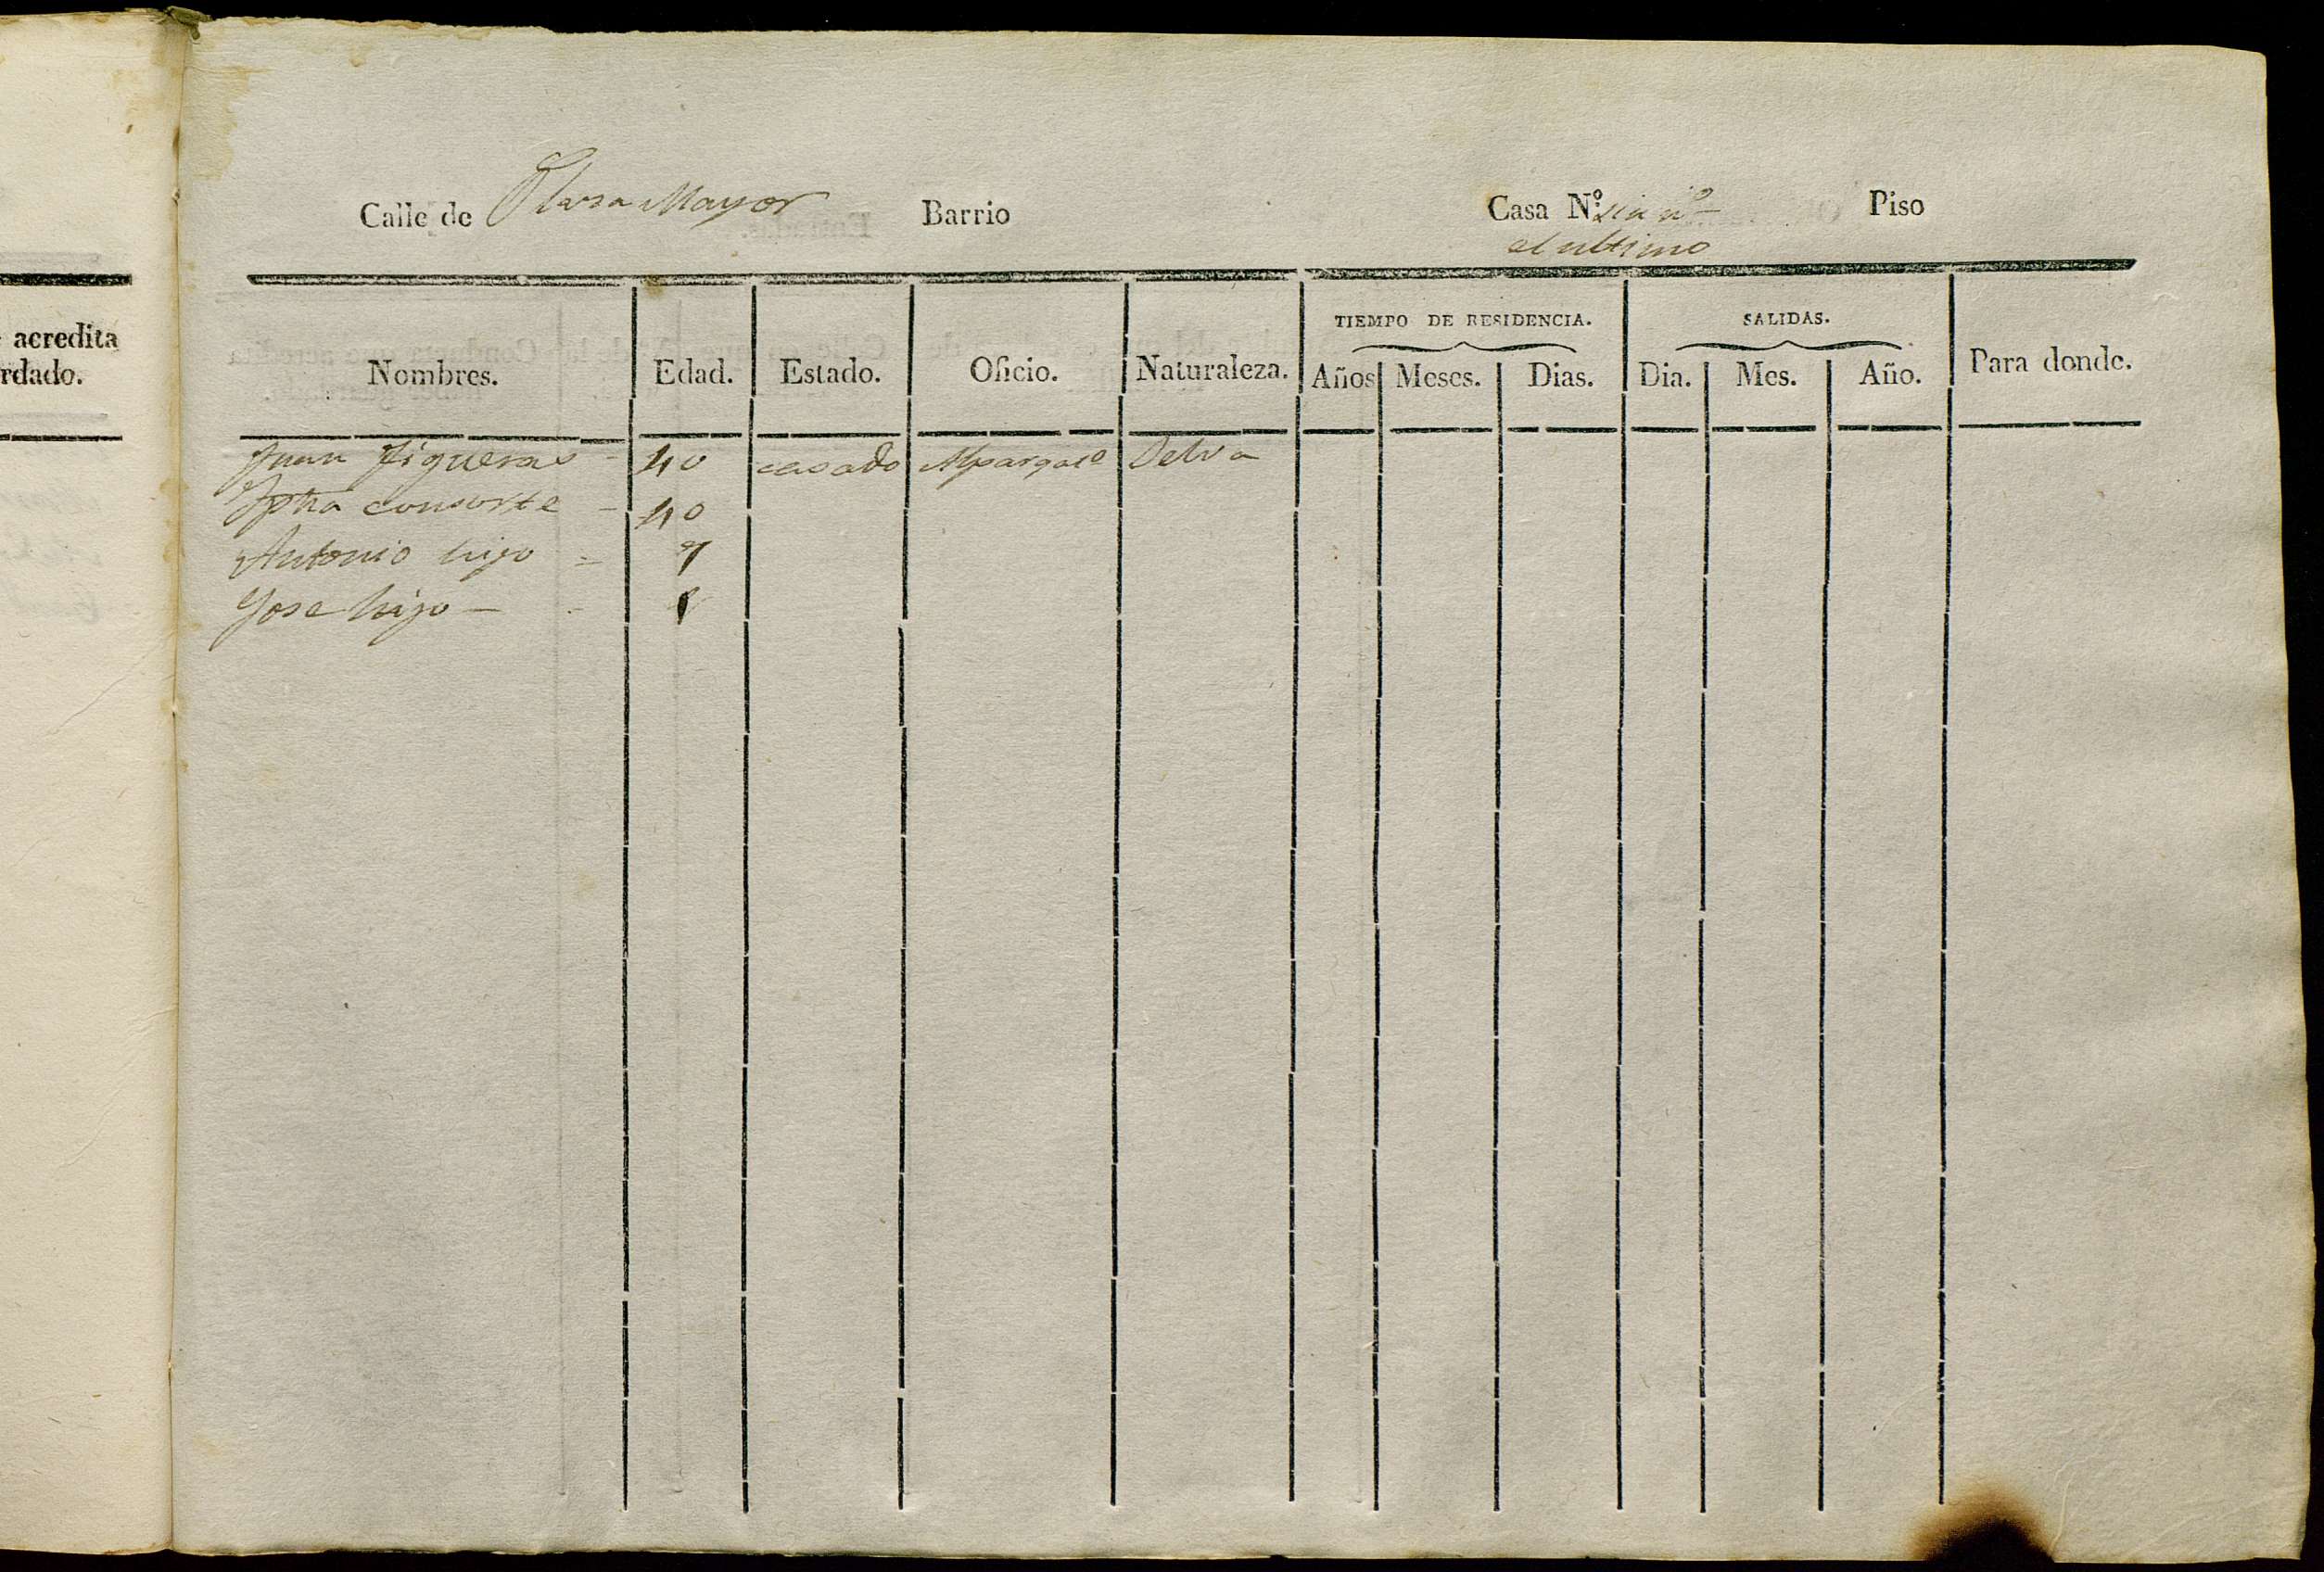 acredita
rdado.
Calle de Plasa Mayor Barrio Casa Nº sin nº Piso
el ultimo
Nombres. Edad. Estado. Oficio. Naturaleza. TIEMPO DE RESIDENCIA. Años Meses. Dias. SALIDAS. Dia. Mes. Año. Para donde.
Juan Figueras - 40 casado Alpargato Selva
consorte - 40
Antonio hijo = 7
Jose hijo -